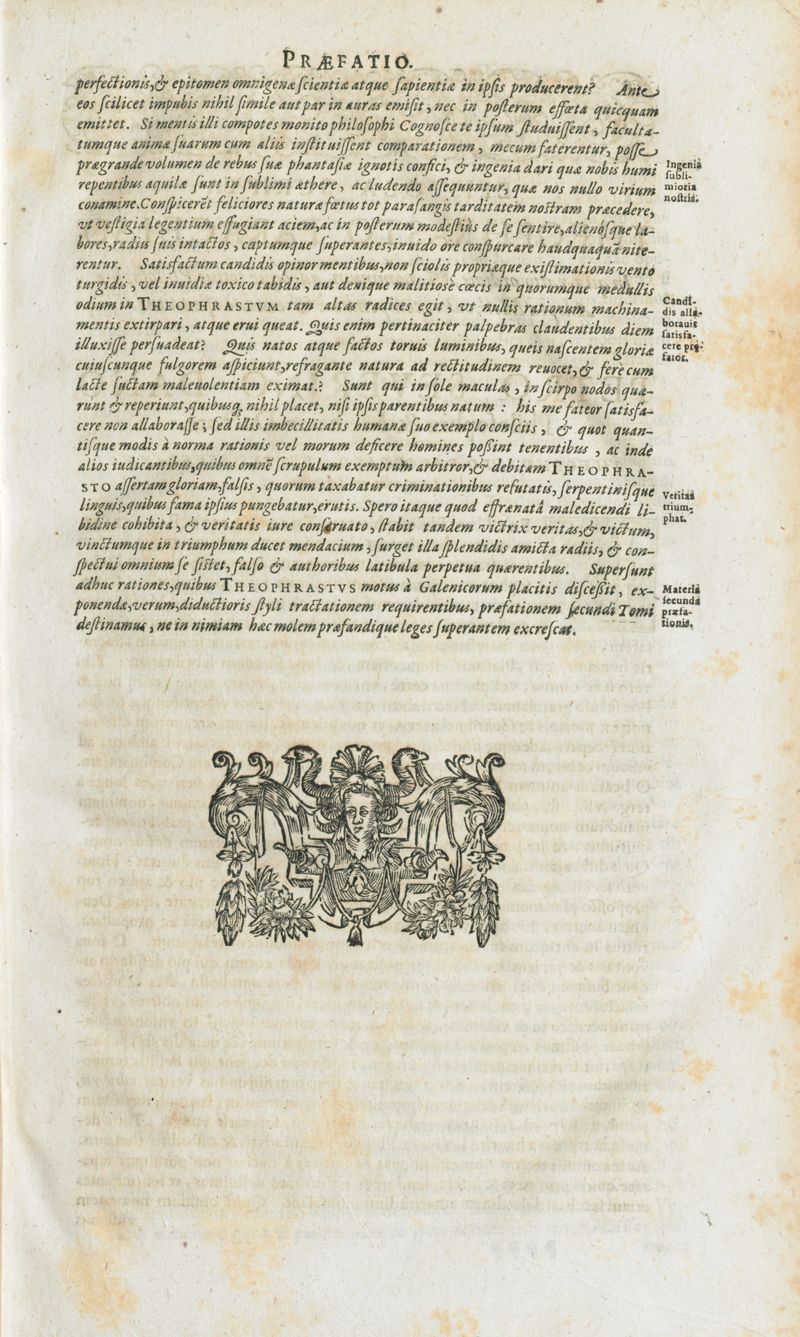 PRÆFATIO.
perfectionis,& epitomen omnigenæ ſcientiæ atque ſapientiæ in ipſis producerent? Ante
eos ſcilicet impubis nihil ſimile aut par in auras emiſit, nec in poſterum effæta quicquam
emittet. Si mentis illi compotes monito philoſophi Cognoſce te ipſum ſtuduiſſent, faculta-
tumque animæ ſuarum cum aliis inſtituiſſent comparationem, mecum faterentur, poſſe
prægrande volumen de rebus ſuæ phantaſiæ ignotis confici, & ingenia dari quæ nobis humi
repentibus aquilæ ſunt in ſublimi æthere, ac ludendo aſſequuntur, quæ nos nullo virium
conamine. Conſpicerēt feliciores naturæ fœtus tot paraſangis tarditatem noſtram præcedere,
vt veſtigia legentium effugiant aciem, ac in poſterum modeſtiùs de ſe ſentire, alienóſque la-
bores, radiis ſuis intactos, captumque ſuperantes, inuido ore conſpurcare haudquaquā nite-
rentur. Satisfactum candidis opinor mentibus, non ſciolis propriæque exiſtimationis vento
turgidis, vel inuidiæ toxico tabidis, aut denique malitiosè cœcis in quorumque medullis
odium in THEOPHRASTVM tam altas radices egit, vt nullis rationum machina-
mentis extirpari, atque erui queat. Quis enim pertinaciter palpebras claudentibus diem
illuxiſſe perſuadeat? Quis natos atque factos toruis luminibus, queis naſcentem gloriæ
cuiuſcunque fulgorem aſpiciunt, refragante natura ad rectitudinem reuocet, & ferè cum
lacte ſuctam maleuolentiam eximat? Sunt qui in ſole maculas, in ſcirpo nodos quæ-
runt & reperiunt, quibusq; nihil placet, niſi ipſis parentibus natum : his me fateor ſatisfa-
cere non allaboraſſe; ſed illis imbecillitatis humanæ ſuo exemplo conſciis, & quot quan-
tiſque modis à norma rationis vel morum deficere homines poßint tenentibus, ac inde
alios iudicantibus, quibus omnē ſcrupulum exemptum arbitror, & debitam THEOPHRA-
STO aſſertam gloriam, falſis, quorum taxabatur criminationibus refutatis, ſerpentiniſque
linguis, quibus fama ipſius pungebatur, erutis. Spero itaque quod effrænatâ maledicendi li-
bidine cohibita, & veritatis iure conſeruato, ſtabit tandem victrix veritas, & victum,
vinctumque in triumphum ducet mendacium, ſurget illa ſplendidis amicta radiis, & con-
ſpectui omnium ſe ſiſtet, falſo & authoribus latibula perpetua quærentibus. Superſunt
adhuc rationes, quibus THEOPHRASTVS motus à Galenicorum placitis diſceßit, ex-
ponendæ, verum, diductioris ſtyli tractationem requirentibus, præfationem ſecundi Tomi
deſtinamus, ne in nimiam hæc molem præfandique leges ſuperantem excreſcat.
Ingenia
ſubli-
miora
noſtris.
Candi-
dis alla-
borauit
ſatisfa-
cere præ-
fator.
Veritas
trium-
phat.
Materia
ſecundæ
præfa-
tionis.